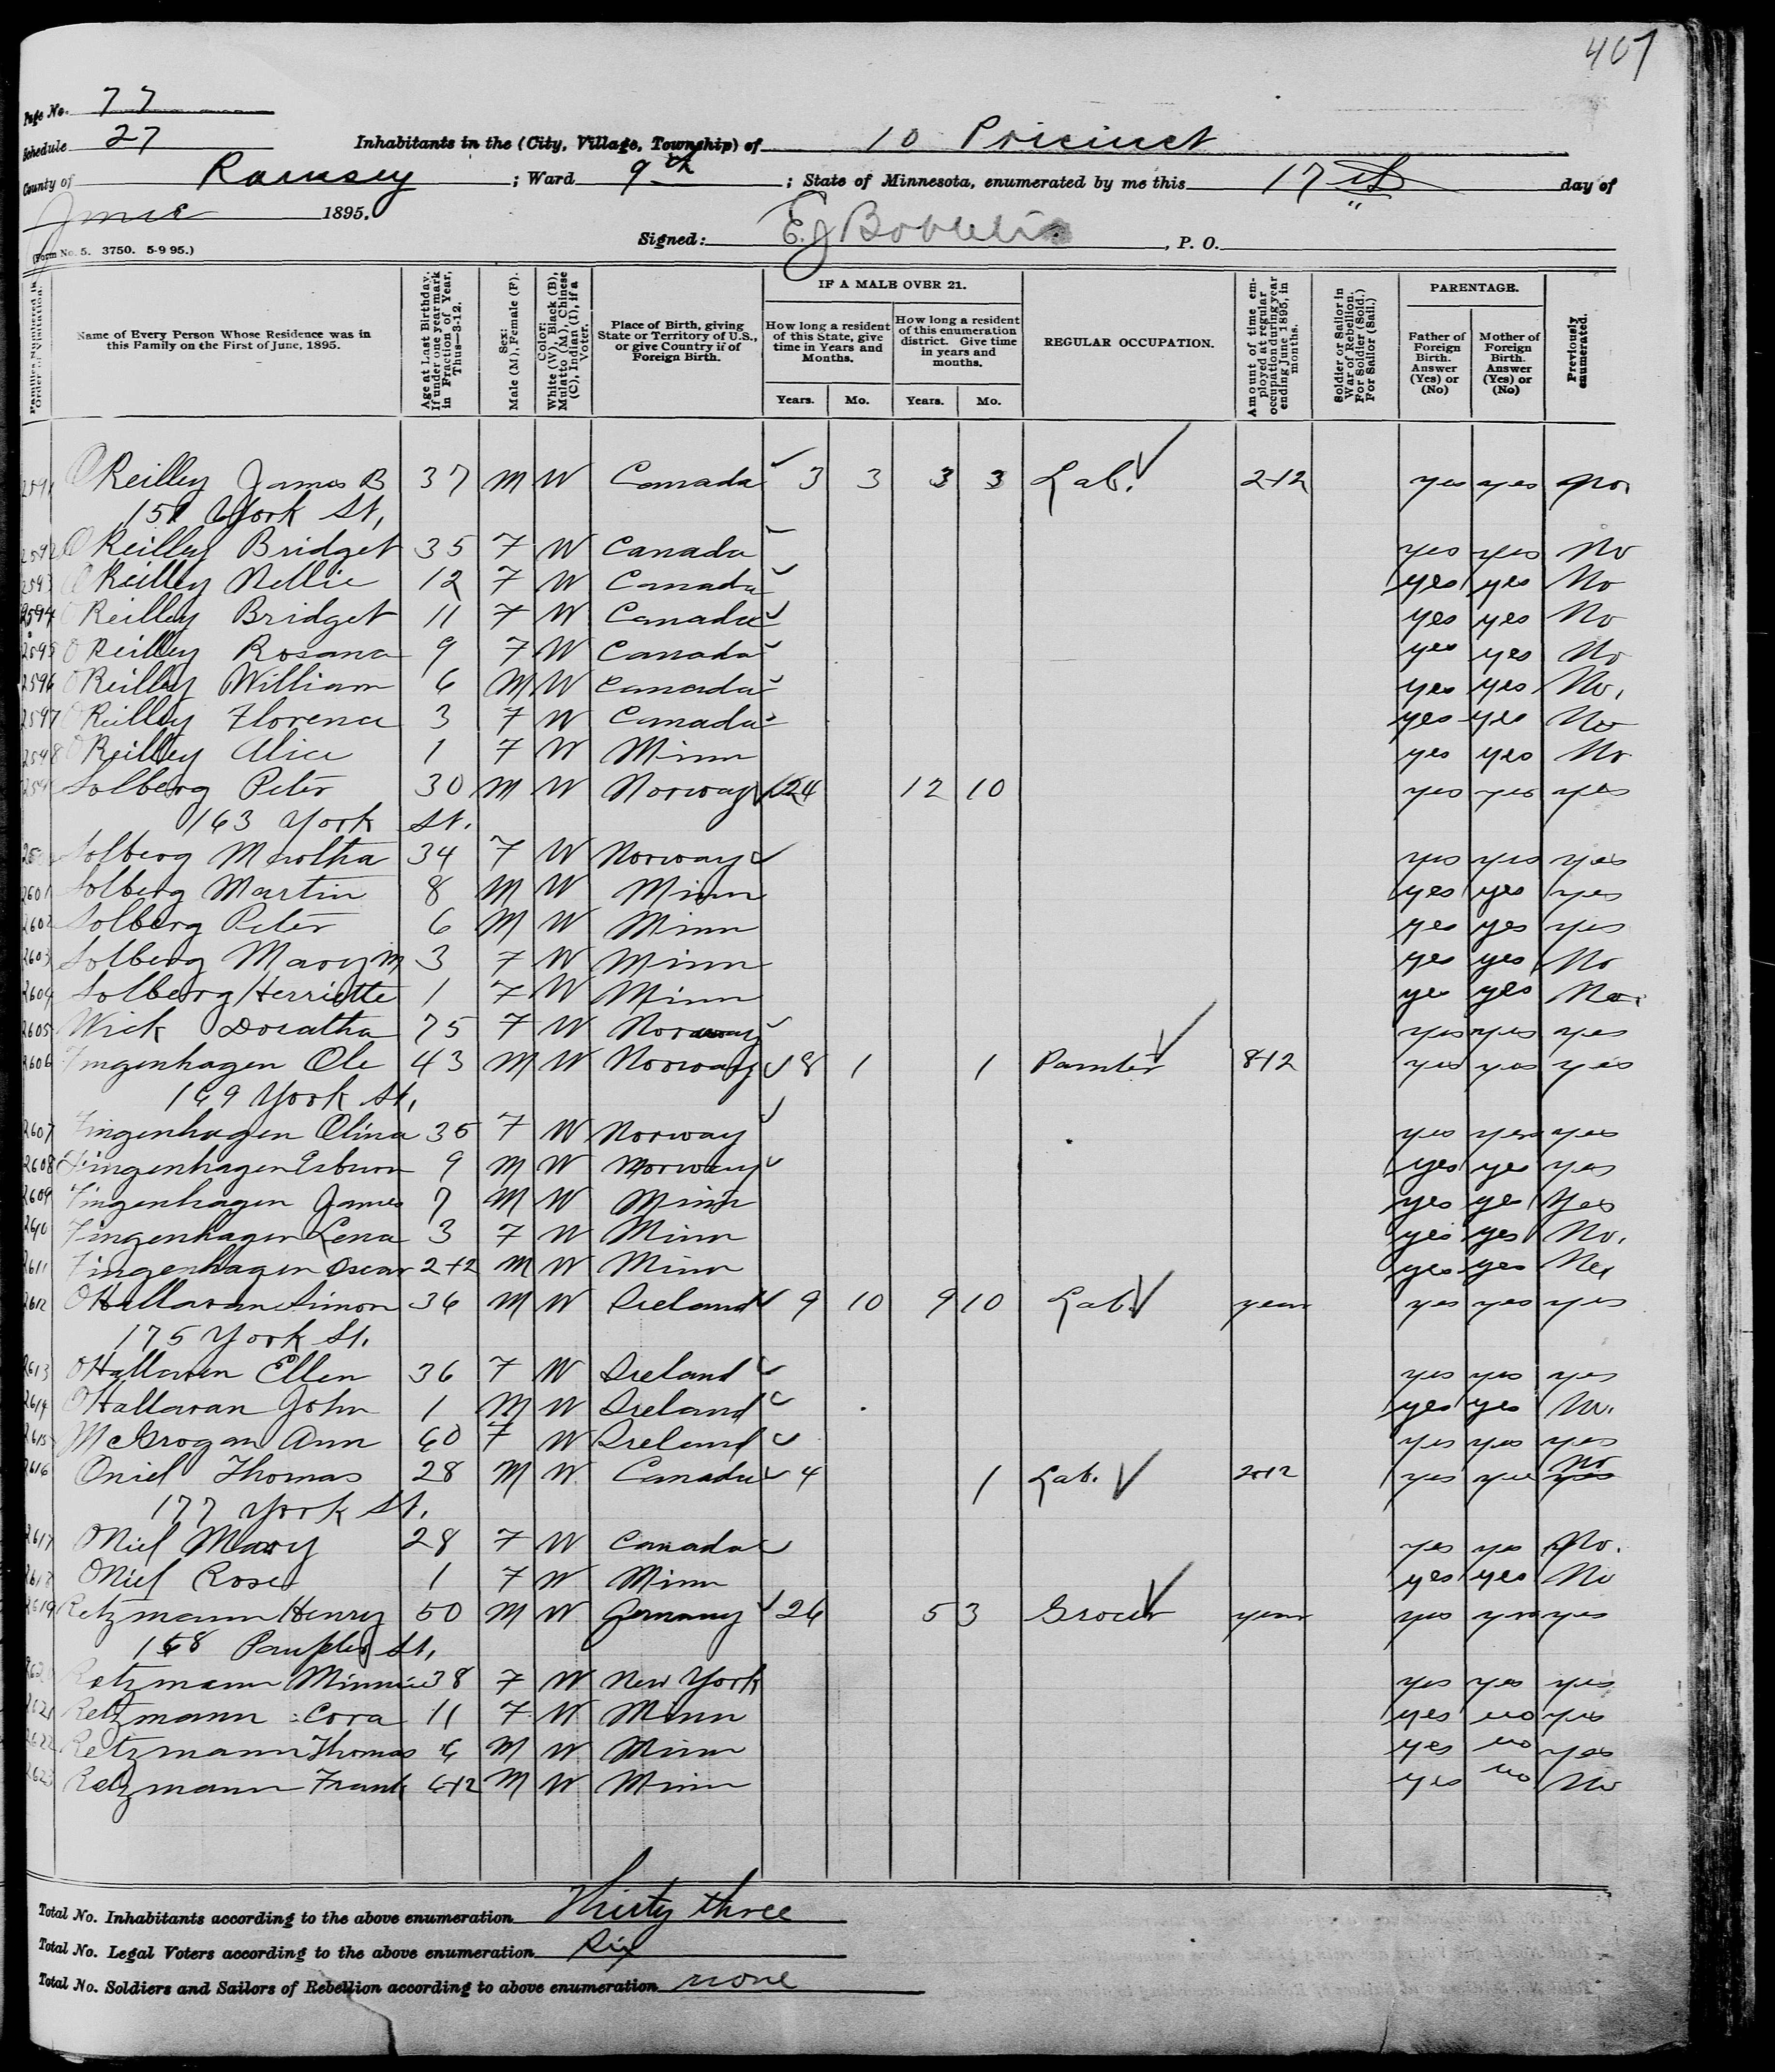 407
Page No. 77
Schedule 27 Inhabitants in the (City, Village, Township) of 10 Pricinct
County of Ramsey ; Ward 9th ; State of Minnesota, enumerated by me this 17th day of
June 1895.
Signed: , P. O.
(Form No. 5. 3750. 5-9 95.)
Families Numbered in Order of Visitation.
Name of Every Person Whose Residence was in this Family on the First of June, 1895.
Age at Last Birthday. If under one year mark in Fraction of Year, Thus—3-12.
Sex: Male (M), Female (F).
Color: White (W), Black (B), Mulatto (M), Chinese (C), Indian (I), if a Voter.
Place of Birth, giving State or Territory of U.S., or give Country if of Foreign Birth.
IF A MALE OVER 21.
How long a resident of this State, give time in Years and Months.
How long a resident of this enumeration district. Give time in years and months.
Years. Mo. Years. Mo.
REGULAR OCCUPATION.
Amount of time employed at regular occupation during year ending June 1895, in months.
Soldier or Sailor in War of Rebellion. For Soldier (Sold.) For Sailor (Sail.)
PARENTAGE.
Father of Foreign Birth. Answer (Yes) or (No)
Mother of Foreign Birth. Answer (Yes) or (No)
Previously enumerated.
2591 O Reilley James B 37 M W Canada 3 3 3 3 Lab. 2-12 yes yes no.
151 York St,
2592 O Reilley Bridget 35 F W Canada yes yes No
2593 O Reilley Nellie 12 F W Canada yes yes No
2594 O Reilley Bridget 11 F W Canada yes yes No
2595 O Reilley Rosana 9 F W Canada yes yes No
2596 O Reilley William 6 M W Canada yes yes No.
2597 O Reilley Florenca 3 F W Canada yes yes No
2598 O Reilley Alice 1 F W Minn yes yes No
259 Solberg Peter 30 M W Norway 24 12 10 yes yes yes
163 York St.
Solberg Martha 34 F W Norway yes yes yes
2601 Solberg Martin 8 M W Minn yes yes yes
2602 Solberg Peter 6 M W Minn yes yes yes
2603 Solberg Mary M 3 F W Minn yes yes No
2604 Solberg Herriette 1 F W Minn yes yes No.
2605 Wick Doratha 75 F W Norway yes yes yes
2606 Fingenhagen Ole 43 M W Norway 8 1 1 Painter 8-12 yes yes yes
169 York St,
2607 Fingenhagen Olina 35 F W Norway yes yes yes
2608 Fingenhagen Esburn 9 M W Norway yes yes yes
2609 Fingenhagen James 7 M W Minn yes ye yes
2610 Fingenhagen Lena 3 F W Minn yes yes No.
2611 Fingenhagen Oscar 2-12 M W Minn yes yes No
2612 OHallaran Simon 36 M W Ireland 9 10 9 10 Lab. year yes yes yes
175 York St.
2613 OHallaran Ellen 36 F W Ireland yes yes yes
2614 OHallaran John 1 M W Ireland yes yes No.
2615 McGrogan Ann 60 F W Ireland yes yes yes
2616 Oniel Thomas 28 M W Canada 4 1 Lab. 2-12 yes yes yes No
177 York St.
2617 ONiel Mary 28 F W Canada yes yes No.
2618 ONiel Rose 1 F W Minn yes yes No
2619 Retzmann Henry 50 M W Germany 26 5 3 Grocer year yes yes yes
168 St,
262 Retzmann Minnie 38 F W New York yes yes yes
2621 Retzmann Cora 11 F W Minn yes no yes
2622 Retzmann Thomas 6 M W Minn yes no yes
2623 Retzmann Frank 6-12 M W Minn yes no No
Total No. Inhabitants according to the above enumeration Thirty three
Total No. Legal Voters according to the above enumeration Six
Total No. Soldiers and Sailors of Rebellion according to above enumeration none